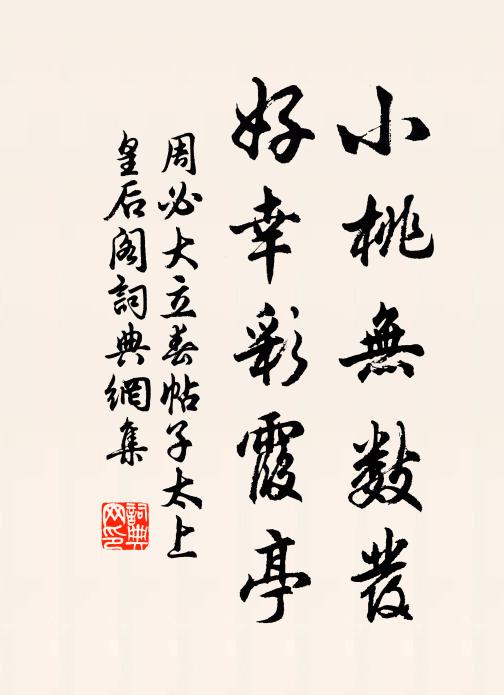 小桃無數發
好幸彩霞亭
周必大立春帖子太上
皇后阁詞典網集
詞典
网印